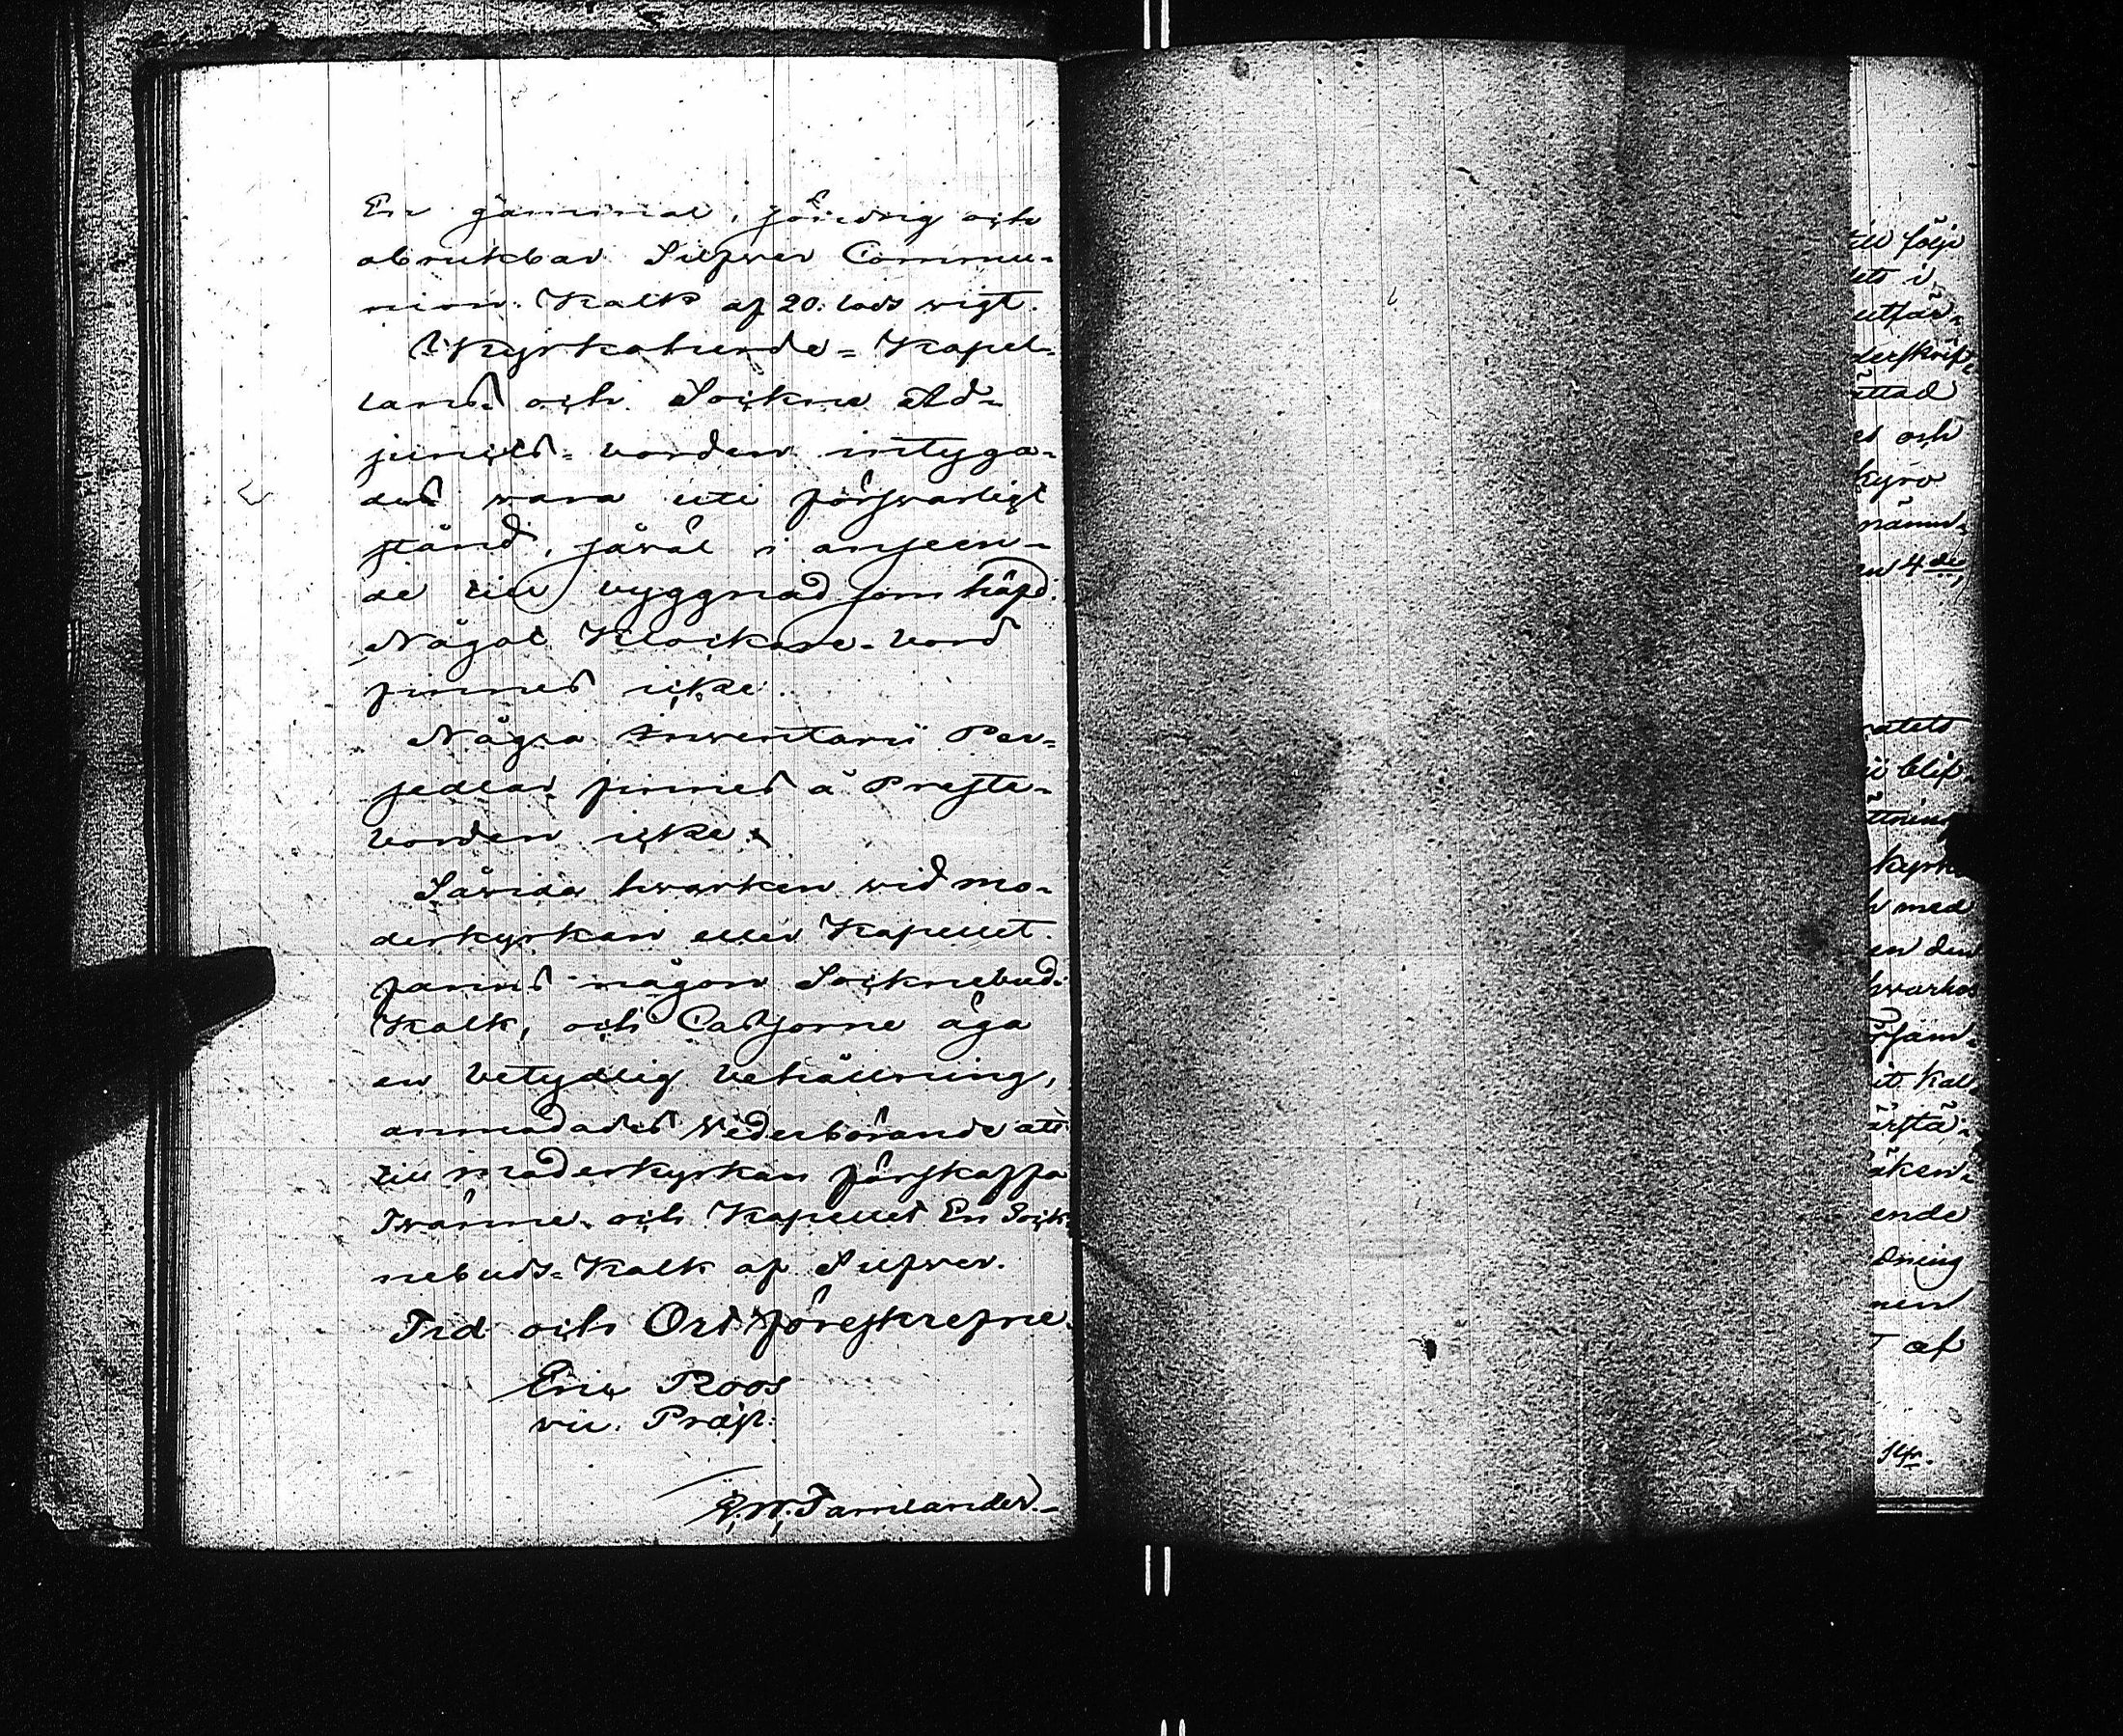 En gammal, söndrig och
obrukbar Silfver Commu-
nion. Kalk af 20. lods wigt.
Kyrkoherde= Kapel-
lans= och Sockne Ad-
juncts= borden intyga-
des wara uti försvarligt
stånd, såväl i anseen-
de till byggnad som häfd.
Något Klockare-bord
finnes icke.
Några Inventarii Per-
sedlar finnes å Preste-
borden icke.
Såvida hwarken wid mo-
derkyrkan eller Kapellet
fanns någon Socknebuds
Kalk, och Cassorne äga
en betydlig behållning,
anmodades Wederbörande att
till moderkyrkan förskaffa
Twänne, och Kapellet En Sock-
nebuds= Kalk af Silfver.
Tid och Ort förskrefne.
Eric Roos
vic. Præp.
Tamlander.
till följe
i
utfär-
derskrif-
ättad
och
kyro
nämn-
4de
blif-
ättning
kyrk
med
den
hwarhos
församl-
Kal
ärstä-
äken-
ende
dning
af
14.